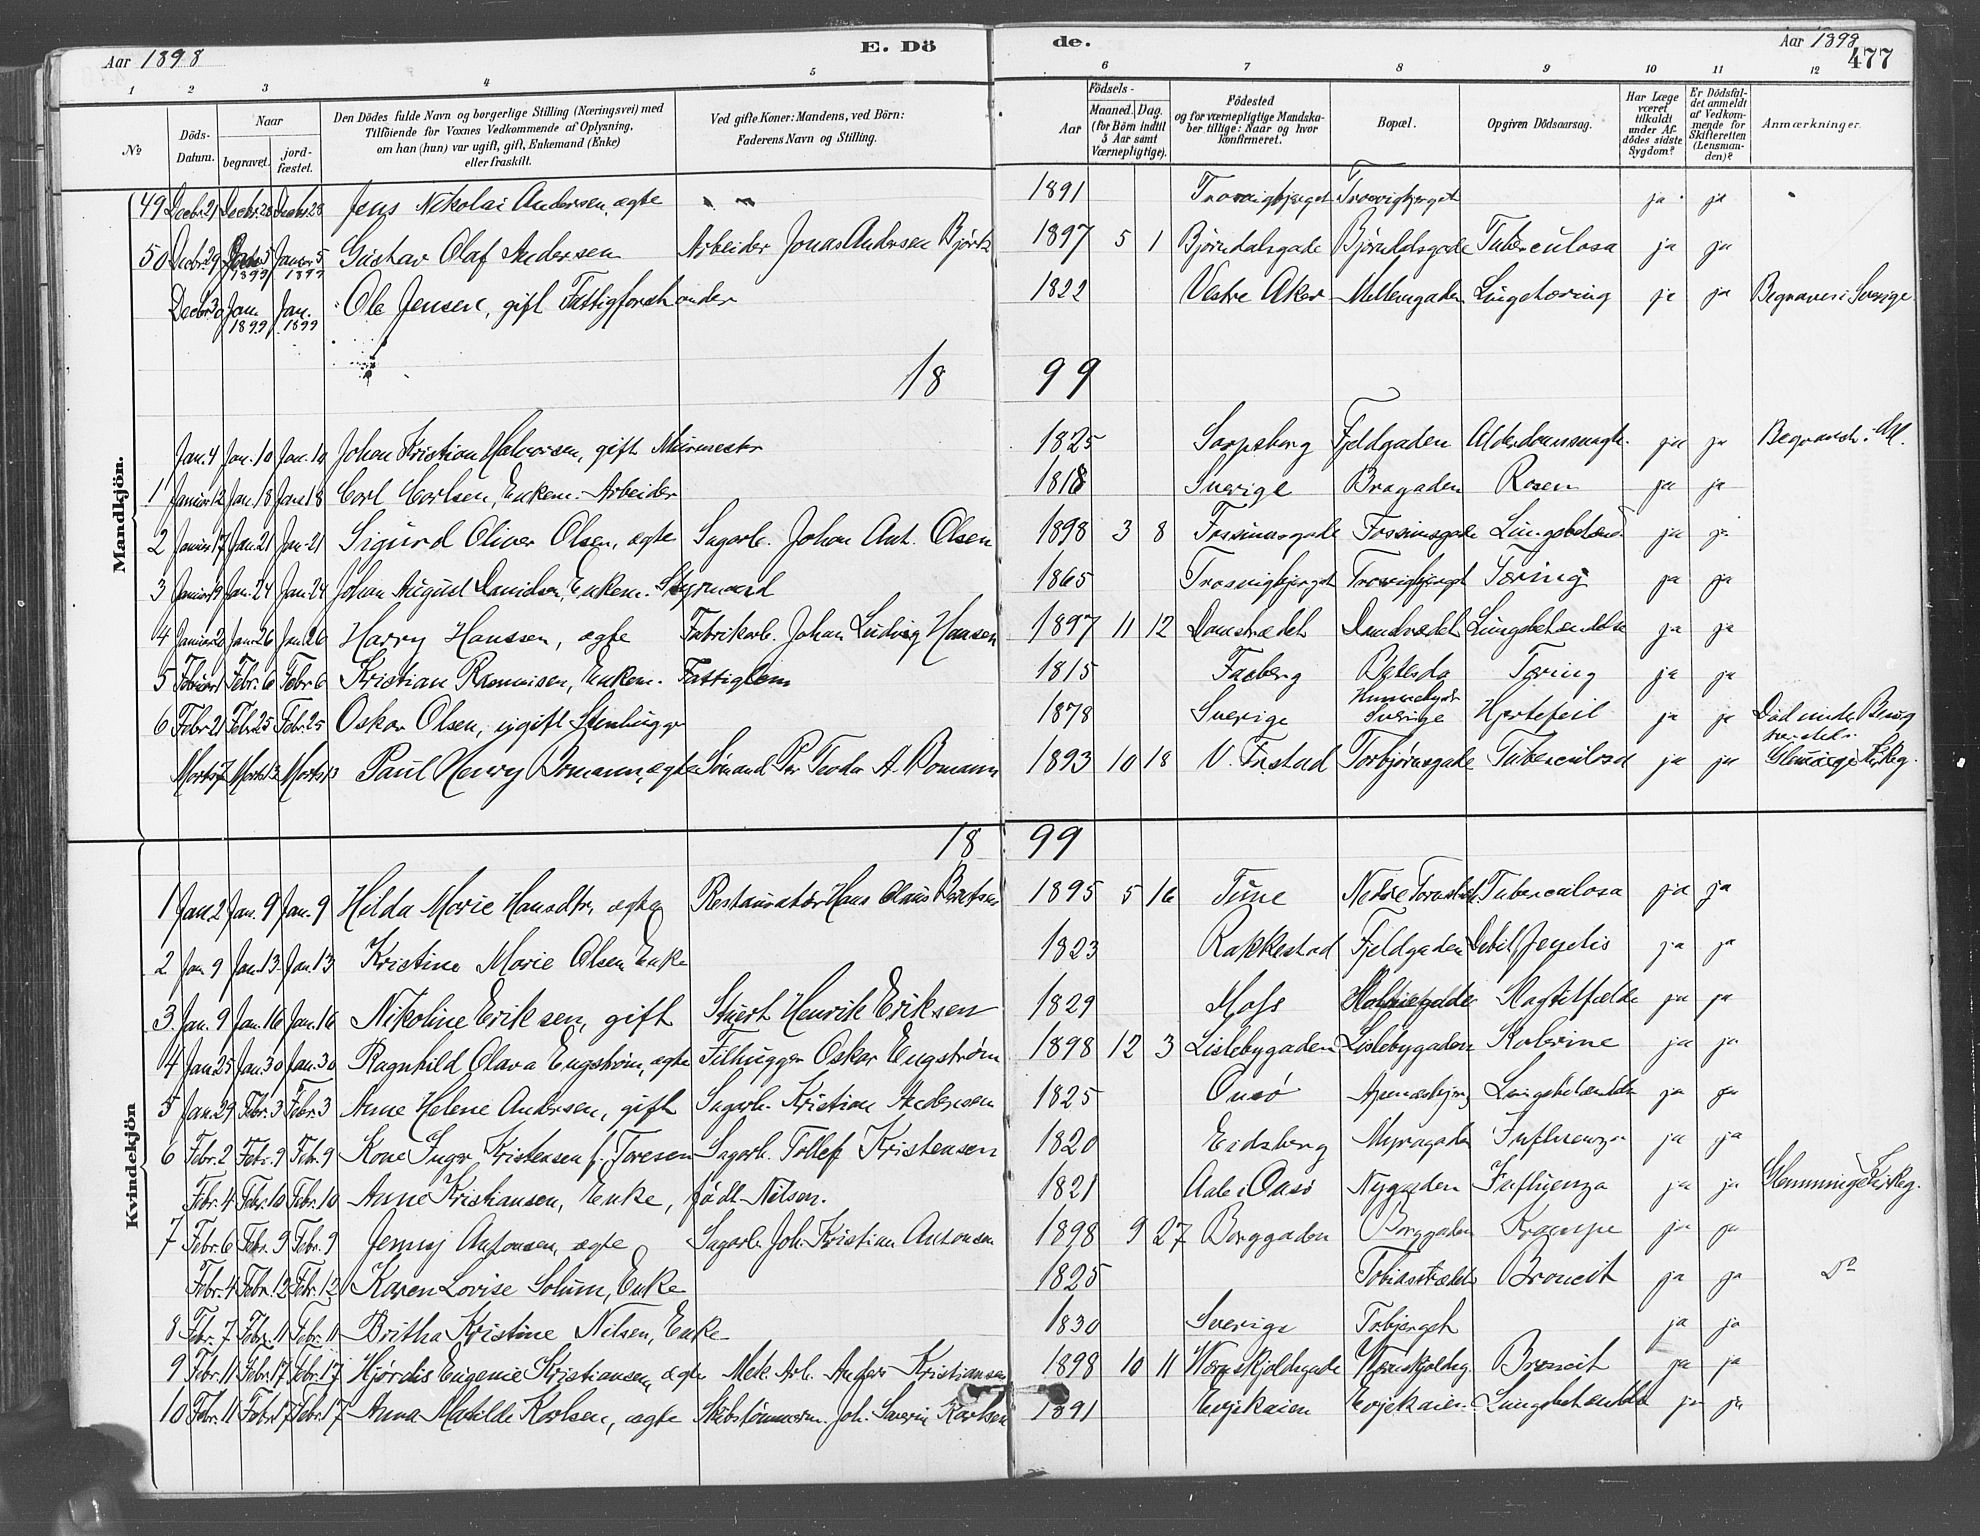 Aar 1898
E. Dö
de.
Aar 1898
477
1 2 3 4 5 6 7 8 9 10 11 12
№
Döds-Datum.
Naar
begravet.
jord-fæstet.
Den Dödes fulde Navn og borgerlige Stilling (Næringsvei) med
Tilföiende for Voxnes Vedkommende af Oplysning,
om han (hun) var ugift, gift, Enkemand (Enke)
eller fraskilt.
Ved gifte Koner: Mandens, ved Börn:
Faderens Navn og Stilling.
Födsels-
Aar
Maaned. Dag.
(for Börn indtil
5 Aar samt
Værnepligtige).
Födested
og for værnepligtige Mandska-
ber tillige: Naar og hvor
konfirmeret.
Bopæl.
Opgiven Dödsaarsag.
Har Læge
været
tilkaldt
under Af-
dödes sidste
Sygdom?
Er Dödsfal-
det anmeldt
af Vedkom-
mende for
Skifteretten
(Lensman-
den)?
Anmærkninger.
Mandkjön.
49 Decbr. 21 Decbr. 28 Decbr. 28 Jens Nikolai Andersen, ægte 1891 Trosvigbjerget Trosvigbjerget ja ja
50 Decbr. 29 5 1899 Januar 5 1899 Gustav Olaf Andersen Arbeider Jonas Andersen 1897 5 1 Bjørndalsgade Bjørndalsgade Tuberculosa ja ja
Decbr. 30 Jan. 1899 Jan. 1899 Ole Jensen, gift Fattigforstander 1822 Vestre Aker Mellemgaden Lungetæring ja ja Begraves i Sverige
1899
Jan. 4 Jan. 10 Jan. 10 Johan Kristian Halvorsen, gift Murmester 1825 Sarpsborg Fjeldgaden ja ja
1 Januar 12 Jan. 18 Jan. 18 Carl Carlsen, Enkem. Arbeider 1818 Sverige Brogaden Rosen ja ja
2 Januar 17 Jan. 21 Jan. 21 Sigurd Oliver Olsen, ægte Sagarb. Johan Ant. Olsen 1898 3 8 Fossumsgade Fossumsgade ja ja
3 Januar 19 Jan. 24 Jan. 24 Johan August Danielsen, Enkem. Styrmand 1865 Trosvigbjerget Trosvigbjerget Tæring ja ja
4 Januar 20 Jan. 26 Jan. 26 Harry Hanssen, ægte Fabrikarb. Johan Ludvig Hansen 1897 11 12 Damstrædet Damstrædet Lungebetændelse ja ja
5 Februar 1 Febr. 6 Febr. 6 Kristian Rasmusen, Enkem. Fattiglem 1815 Faaberg Betesda Tæring ja ja
6 Febr. 21 Febr. 25 Febr. 25 Oskar Olsen, ugift Stenhugger 1878 Sverige Sverige Hjertefeil ja ja Død under Besøg
Marts 7 Marts 13 Marts 13 Paul Henry Bomann, ægte Sömand Per Teodor A. Bomann 1893 10 18 V. Fristad Torbjørnsgade Tuberculosa ja ja Glemminge Kirkeg.
1899
Kvindekjön
1 Jan. 2 Jan. 9 Jan. 9 Hilda Marie Hansdtr, ægte Restauratør Hans Olaus Berntsen 1895 5 16 Tune Nedre Tuberculosa ja ja
2 Jan. 9 Jan. 13 Jan. 13 Kristine Marie Olsen Enke 1823 Rakkestad Fjeldgaden Debil. senilis ja ja
3 Jan. 9 Jan. 16 Jan. 16 Nikoline Eriksen, gift Stuert Henrik Eriksen 1829 Moss Slagtilfælde ja ja
4 Jan. 25 Jan. 30 Jan. 30 Ragnhild Olava Engström, ægte Filhugger Oskar Engström 1898 12 3 Lislebygaden Lislebygaden Kolerine ja ja
5 Jan. 29 Febr. 3 Febr. 3 Anne Helene Andersen, gift Sagarb. Kristian Andersen 1825 Onsö Lungebetændelse ja ja
6 Febr. 2 Febr. 9 Febr. 9 Kone Inger Kristensen f. Toresen Sagarb. Tollef Kristensen 1820 Eidsberg Myragaden Influenza ja ja
Febr. 4 Febr. 10 Febr. 10 Anne Kristiansen, Enke, födt Nilsen. 1821 Aale i Onsö Nygaden Influenza ja ja Glemminge Kirkeg.
7 Febr. 6 Febr. 9 Febr. 9 Jenny Antonsen, ægte Sagarb. Joh. Kristian Antonsen 1898 9 27 Borggaden Borggaden Krampe ja ja
Febr. 4 Febr. 12 Febr. 12 Karen Lovise Solum, Enke 1825 Tobiasstrædet Broncit ja ja Do
8 Febr. 7 Febr. 11 Febr. 11 Britha Kristine Nilsen, Enke 1830 Sverige ja ja
9 Febr. 11 Febr. 17 Febr. 17 Hjördis Eugenie Kristiansen, ægte Mek. Arb. Anders Kristiansen 1898 10 11 Wærnskjoldsgade Wærnskjoldsg. Broncit ja ja
10 Febr. 11 Febr. 17 Febr. 17 Anna Matilde Karlsen, ægte Skibstömmerm. Joh. Severin Karlsen 1891 Evjekaien Evjekaien Lungebetændelse ja ja